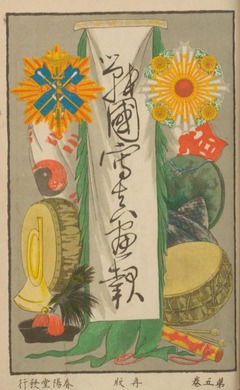 戰國寫真畫報
第五卷
再版
春陽堂發行